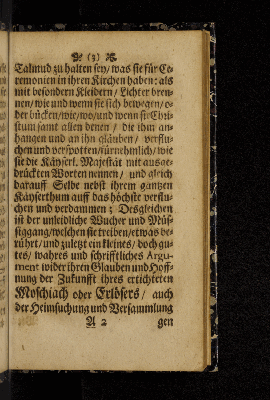 (3)
Talmud zu halten sey/ was sie für Ce-
remonien in ihren Kirchen haben: als
mit besondern Kleidern/ Lichter bren-
nen/ wie und wenn sie sich bewegen/ o-
der bücken/ wie/ wo/ und wenn sie Chri-
stum samt allen denen/ die ihm an-
hangen und an ihn gläuben/ verflu-
chen und verspotten/ fürnehmlich/ wie
sie die Käyserl. Majestät mit ausge-
drückten Worten nennen/ und gleich
darauff Selbe nebst ihrem gantzen
Käyserthum auff das höchste verflu-
chen und verdammen; Desgleichen
ist der unleidliche Wucher und Müs-
siggang/ welchen sie treiben/ etwas be-
rührt/ und zuletzt ein kleines/ doch gu-
tes/ wahres und schrifftliches Argu-
ment wider ihren Glauben und Hoff-
nung der Zukunfft ihres ertichteten
Moschiach oder Erlösers/ auch
der Heimsuchung und Versammlung
A 2 gen